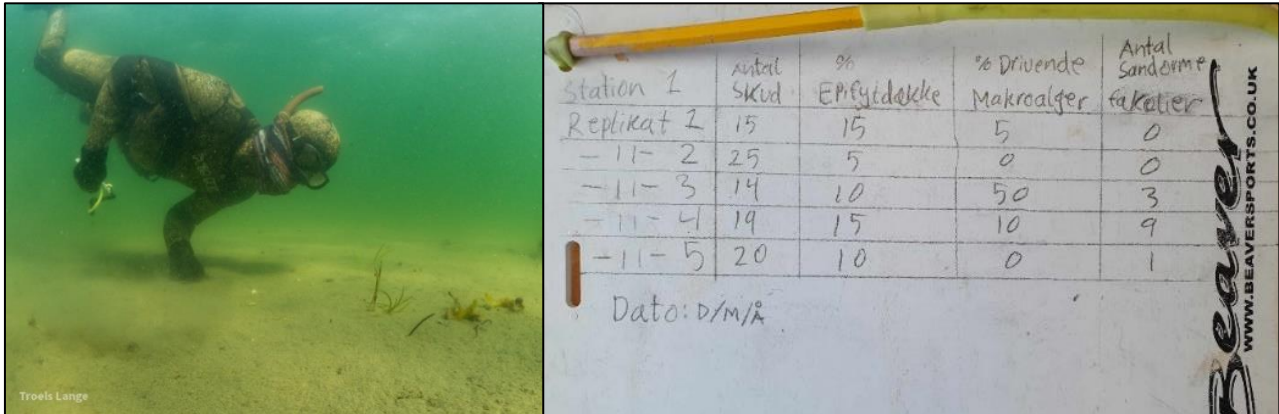 Troels Lange
Station 1 Antal Skud % Epifytdække % Drivende Makroalger Antal Sandorme fækalier
Replikat 1 15 15 5 0
-11- 2 25 5 0 0
-11- 3 14 10 50 3
-11- 4 19 15 10 9
-11- 5 20 10 0 1
Dato: D/M/Å
Beaver
WWW.BEAVERSPORTS.CO.UK